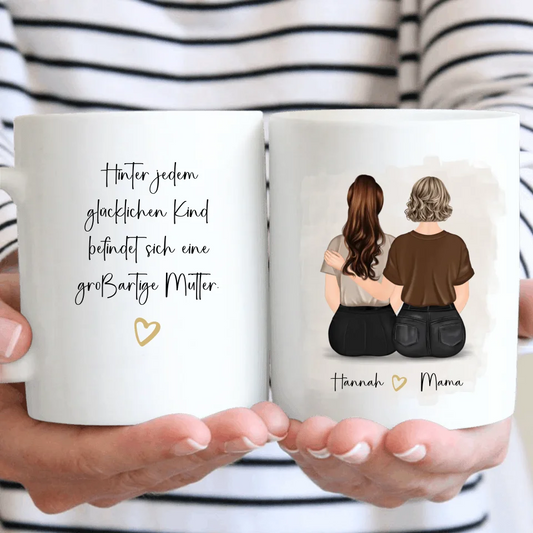 Hinter jedem
glücklichen Kind
befindet sich eine
großartige Mutter.
Hannah Mama